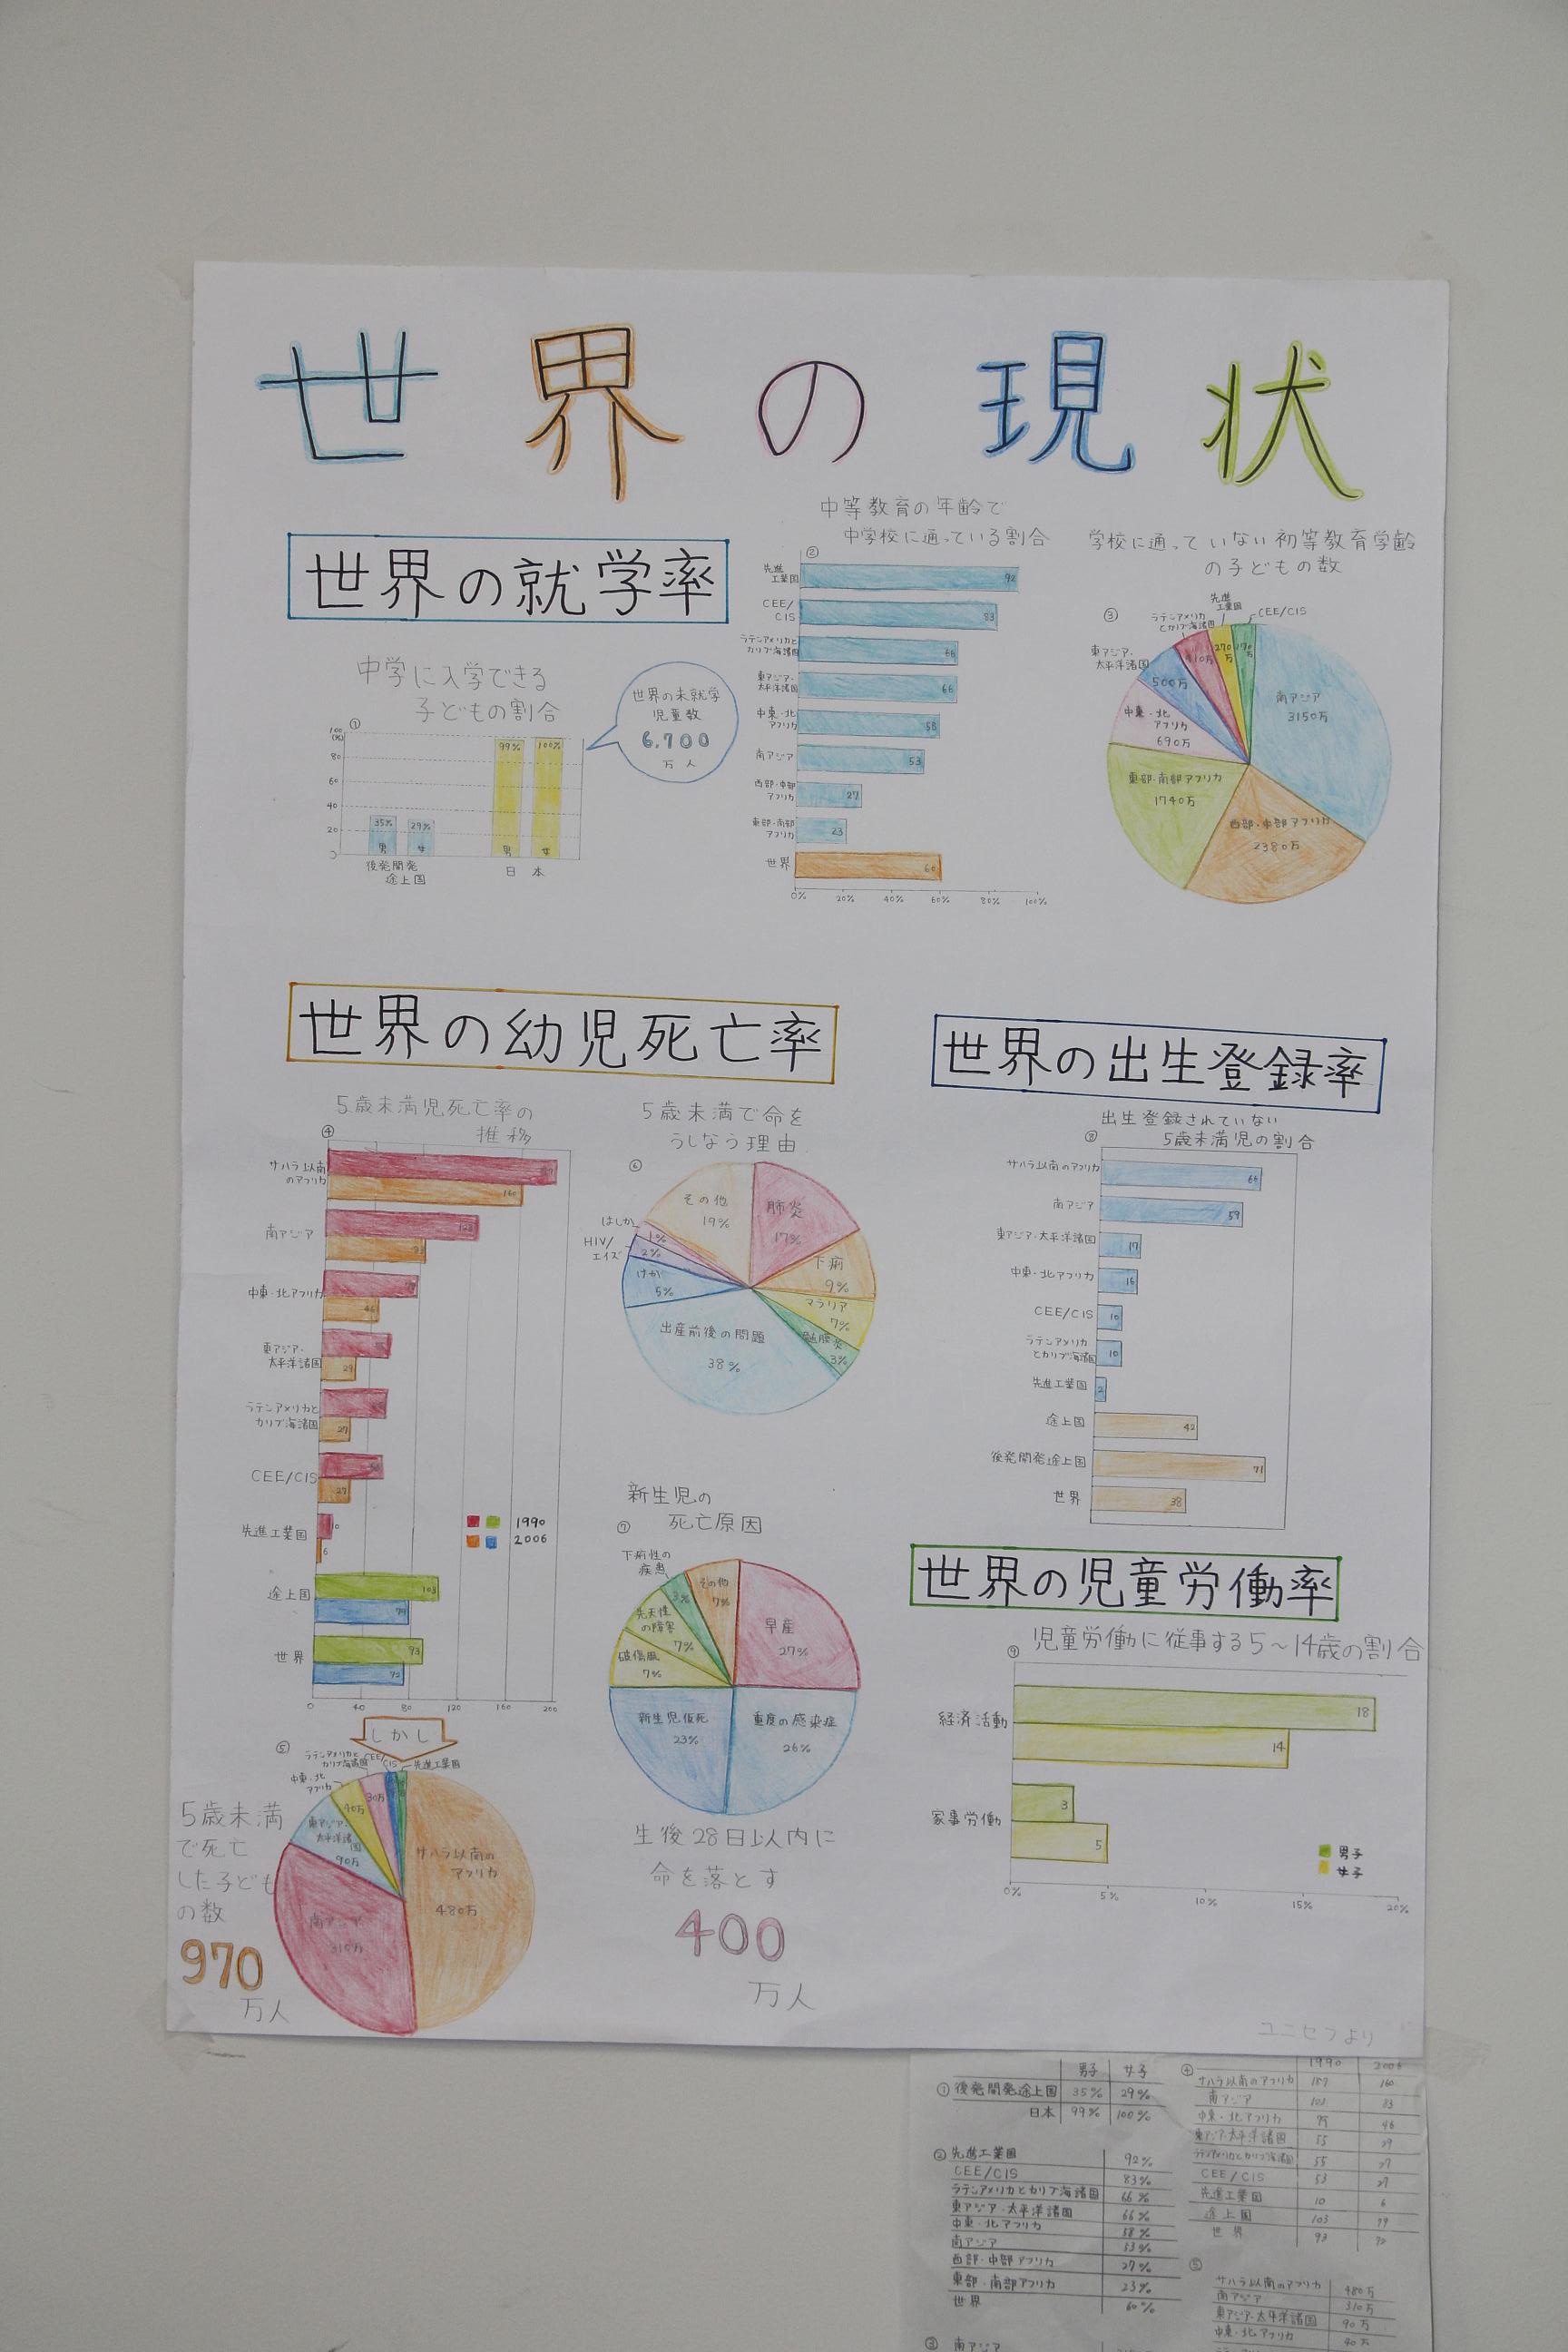 世界の現状
世界の就学率
中学に入学できる
子どもの割合
①
100
(%)
80
60
40
20
0
35%
29%
99%
100%
男
女
男
女
後発開発
途上国
日本
世界の未就学
児童数
6,700
万人
中等教育の年齢で
中学校に通っている割合
②
先進
工業国
92
CEE/
CIS
83
ラテンアメリカと
カリブ海諸国
66
東アジア・
太平洋諸国
66
中東・北
アフリカ
58
南アジア
53
西部・中部
アフリカ
27
東部・南部
アフリカ
23
世界
60
0% 20% 40% 60% 80% 100%
学校に通っていない初等教育学齢
の子どもの数
③
先進
工業国
CEE/CIS
ラテンアメリカ
とカリブ海諸国
東アジア・
太平洋諸国
410万
270
万
170
万
500万
南アジア
3150万
中東・北
アフリカ
690万
東部・南部アフリカ
1740万
西部・中部アフリカ
2380万
世界の幼児死亡率
5歳未満児死亡率の
推移
④
サハラ以南
のアフリカ
187
160
南アジア
123
83
中東・北アフリカ
79
46
東アジア・
太平洋諸国
55
29
ラテンアメリカと
カリブ海諸国
55
27
CEE/CIS
53
27
先進工業国
10
6
1990
2006
途上国
103
79
世界
93
72
0 40 80 120 160 200
しかし
⑤
ラテンアメリカと
カリブ海諸国
CEE/
CIS
先進工業国
中東・北
アフリカ
40万
30万
東アジア・
太平洋諸
国
90万
サハラ以南の
アフリカ
480万
南アジア
310万
5歳未満
で死亡
した子ども
の数
970
万人
5歳未満で命を
うしなう理由
⑥
その他
19%
肺炎
17%
はしか
1%
HIV/
エイズ
2%
下痢
9%
けが
5%
マラリア
7%
髄膜炎
3%
出産前後の問題
38%
新生児の
死亡原因
⑦
下痢性の
疾患
3%
その他
7%
早産
27%
先天性
の障害
7%
破傷風
7%
新生児仮死
23%
重度の感染症
26%
生後28日以内に
命を落とす
400
万人
世界の出生登録率
出生登録されていない
5歳未満児の割合
⑧
サハラ以南のアフリカ
66
南アジア
59
東アジア・太平洋諸国
17
中東・北アフリカ
16
CEE/CIS
10
ラテンアメリカ
とカリブ海諸国
10
先進工業国
2
途上国
42
後発開発途上国
71
世界
38
世界の児童労働率
児童労働に従事する5〜14歳の割合
⑨
経済活動
18
14
家事労働
3
5
男子
女子
0% 5% 10% 15% 20%
ユニセフより
男子 女子
①後発開発途上国 35% 29%
日本 99% 100%
②先進工業国 92%
CEE/CIS 83%
ラテンアメリカとカリブ海諸国 66%
東アジア・太平洋諸国 66%
中東・北アフリカ 58%
南アジア 53%
西部・中部アフリカ 27%
東部・南部アフリカ 23%
世界 60%
③ 南アジア
④ 1990 2006
サハラ以南のアフリカ 187 160
南アジア 83
中東・北アフリカ 79 46
東アジア・太平洋諸国 55 29
ラテンアメリカとカリブ海諸国 55 27
CEE/CIS 53 27
先進工業国 10 6
途上国 103 79
世界 93 72
⑤
サハラ以南のアフリカ 480万
南アジア 310万
東アジア・太平洋諸国 90万
中東・北アフリカ 40万